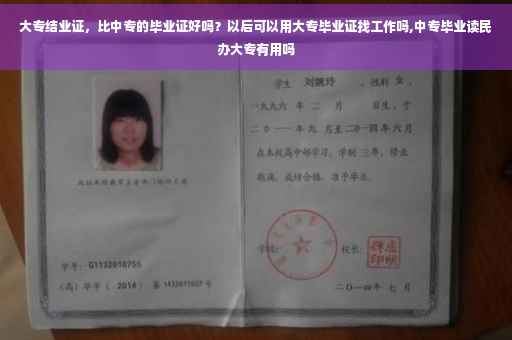 大专结业证，比中专的毕业证好吗？以后可以用大专毕业证找工作吗,中专毕业读民
办大专有用吗
学生 刘婉玲 ，性别 女 ，
一九九六 年 二 月 日生，于
二〇一一年九 月至二〇一四年 六月
在本校高中部学习，学制 三年，修业
期满，成绩合格，准予毕业。
学校： 校长：
学号：G1132010755
（高）毕字（ 2014 ）第 1432011027 号
二〇一四年 七 月